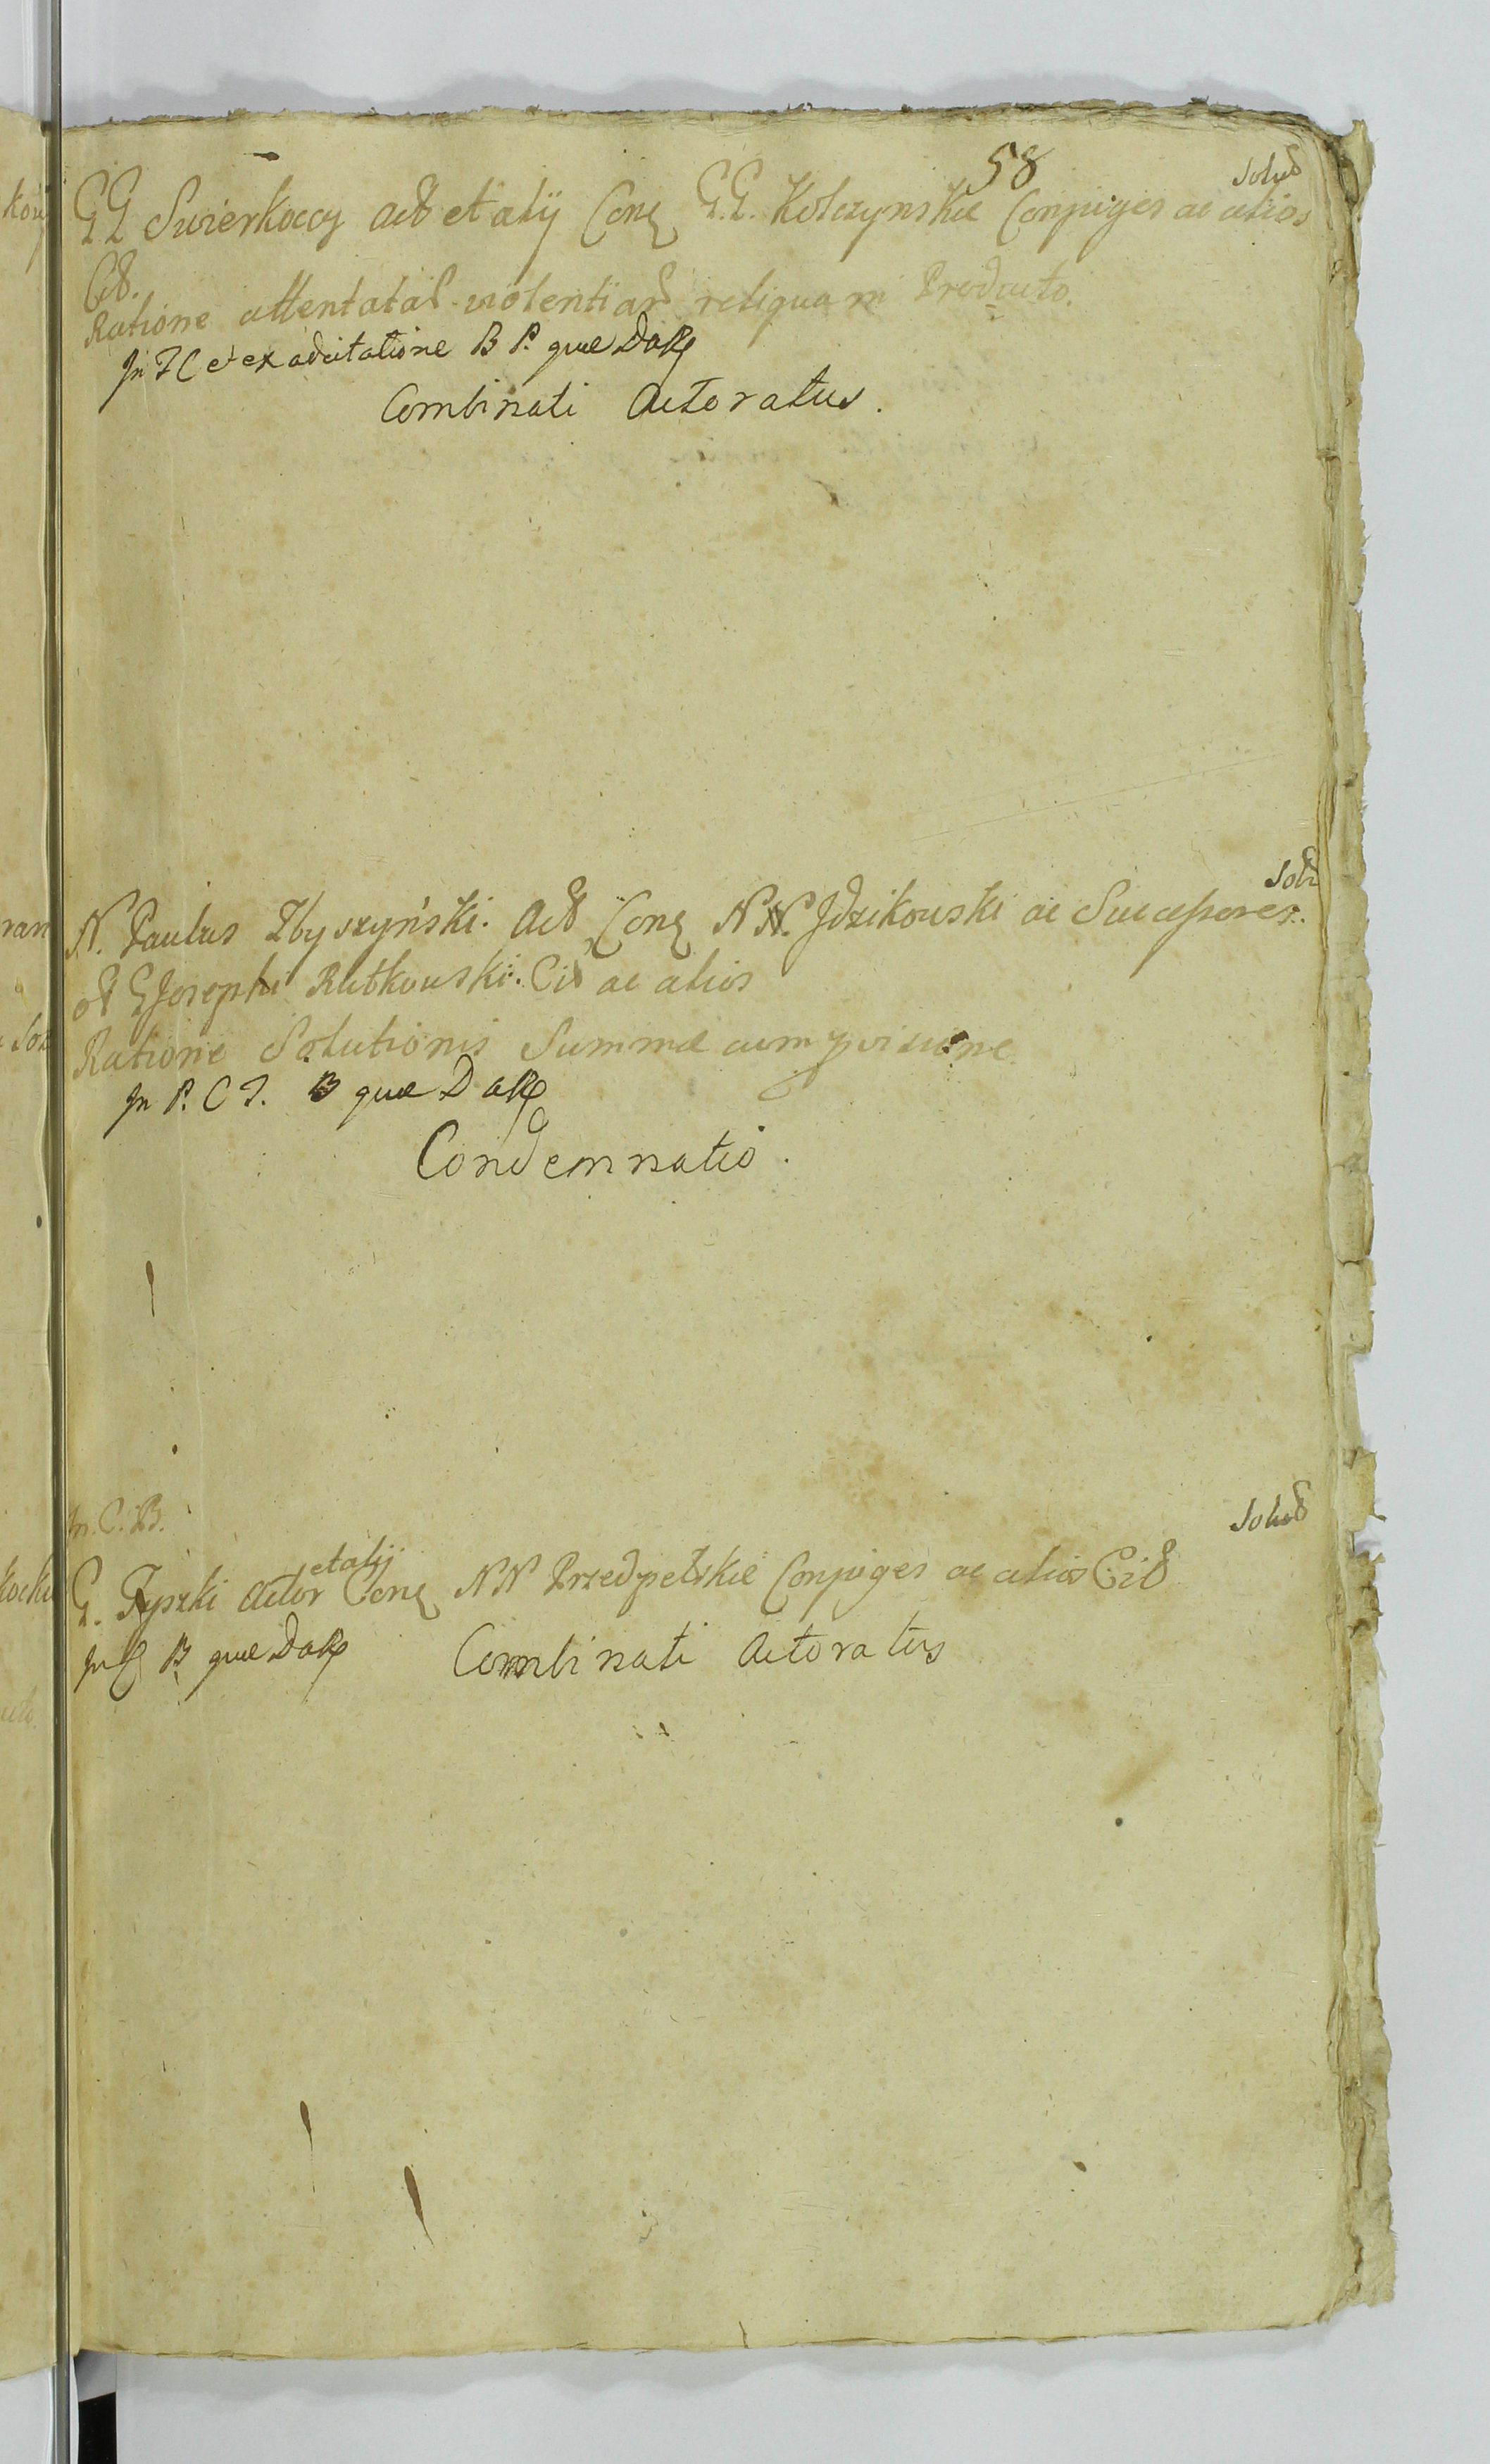 58
Solut
GG Swierkoccy act et alij Conq G.G. Kolczynskie Conjuges ac alios
Cit.
Ratione attentatar violentiar reliquam Producto.
In T C et ex adcitatione B P. quae DaR
Combinati Actoratus.
Solt
N. Paulus Zbyszyński. Act Conq NN. Jdzikowski ac Successores.
ol G Josephi Rutkowski. Cit ac alios
Ratione Solutionis Summae cum provisione
In P. C T. B quae DaR
Condemnatio.
In. C. B.
Solut
et alij
G. Tyszki Actor Conq NN Przedpełskie Conjuges ac alios Cit
In C B quae DaR Combinati Actoratus